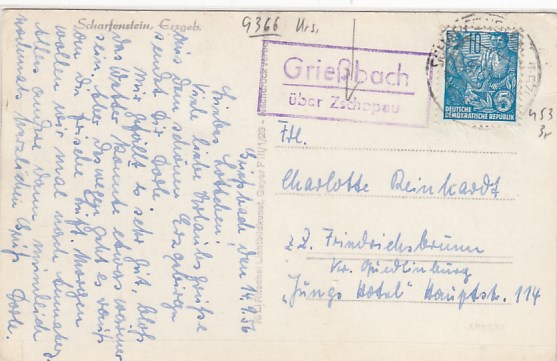 Scharfenstein, Erzgeb.
9366 Urs.
Grießbach
über Zschopau
10
5
DEUTSCHE
DEMOKRATISCHE REPUBLIK
453
Grießbach den 14.9.56
Liebes Lottchen!
Viele liebe Urlaubsgrüße
aus dem schönen Erzgebirge
sendet dir Dorle.
Mir gefällt es sehr gut, bloß
das Wetter könnte etwas wärmer
sein. Aber deswegen geht es raus
an die frische Luft. Morgen
wollen wir mal nach
Alles andere dann mündlich
nochmals herzlichen Gruß Dorle.
Frl.
Charlotte Reinhardt
z.Z. Friedrichsbrunn
Kr. Quedlinburg
"Jungs Hotel" Hauptstr. 114